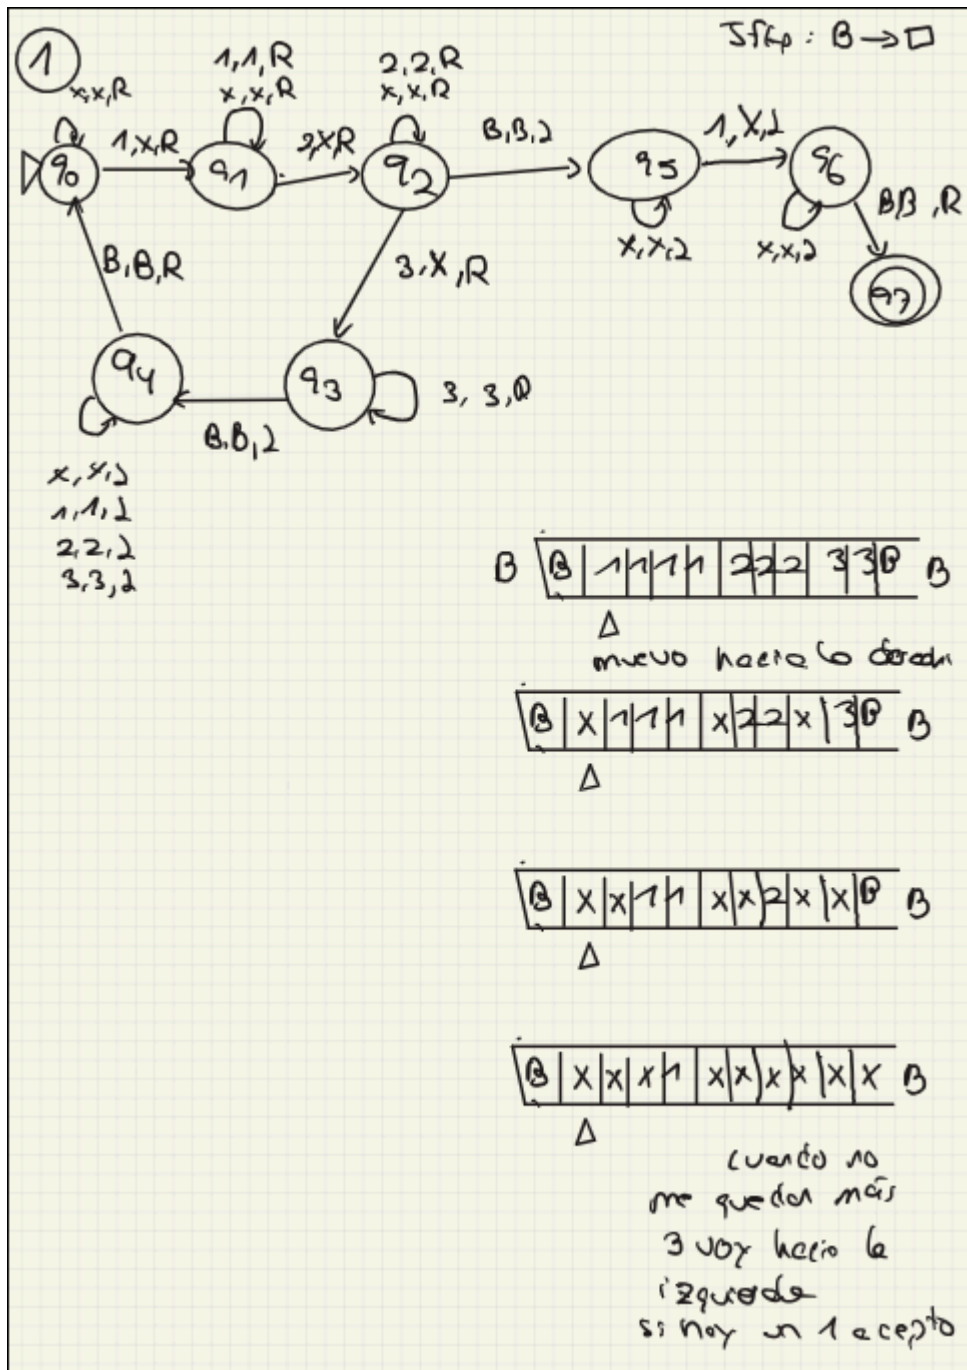 1
Jflap: B→□
x,x,R
1,1,R
x,x,R
2,2,R
x,x,R
q0
1,x,R
q1
2,x,R
q2
B,B,L
q5
1,X,L
q6
B,B,R
q7
x,x,L
x,x,L
B,B,R
3,X,R
q4
B,B,L
q3
3,3,R
x,x,L
1,1,L
2,2,L
3,3,L
B B 1 1 1 1 2 2 2 3 3 B B
muevo hacia la derecha
B X 1 1 1 X 2 2 X 3 B B
B X X 1 1 X X 2 X X B B
B X X X 1 X X X X X X B
cuando no
me quedan más
3 voy hacia la
izquierda
si hay un 1 acepto